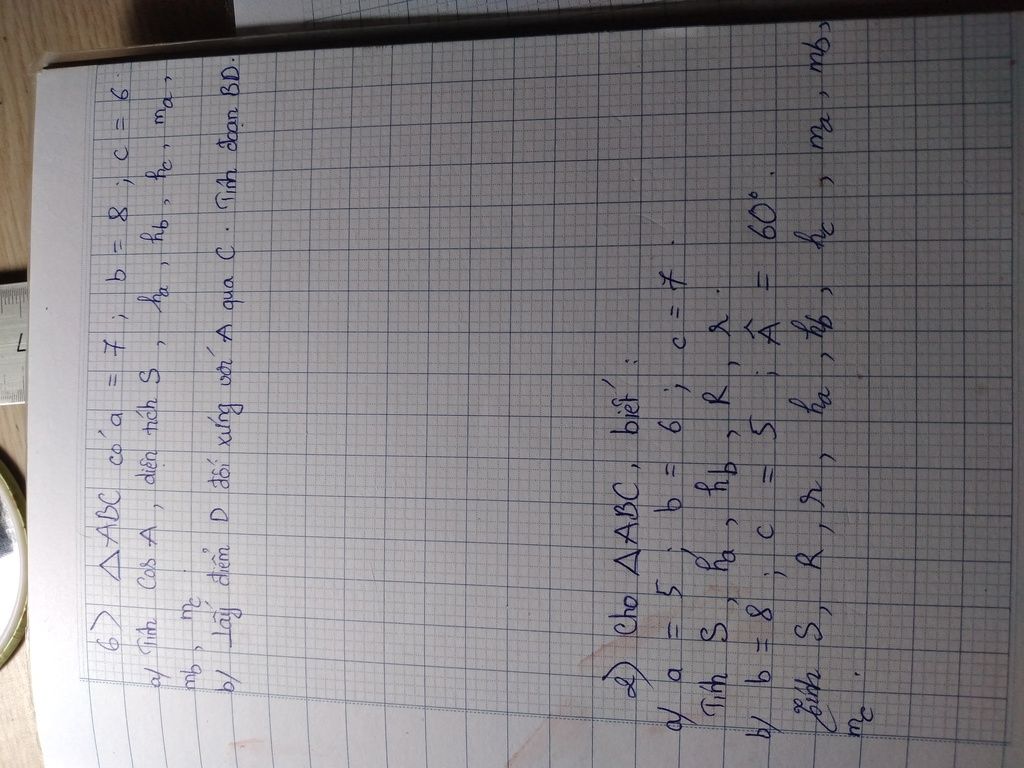 6> △ABC có a = 7 ; b = 8 ; c = 6.
a/ Tính Cos A, diện tích S, ha, hb, hc, ma,
mb, mc
b/ Lấy điểm D đối xứng với A qua C. Tính đoạn BD.
2) Cho △ABC, biết :
a/ a = 5 ; b = 6 ; c = 7.
Tính S, ha, hb, R, r.
b/ b = 8 ; c = 5 ; Â = 60°.
Tính S, R, r, ha, hb, hc, ma, mb,
mc.